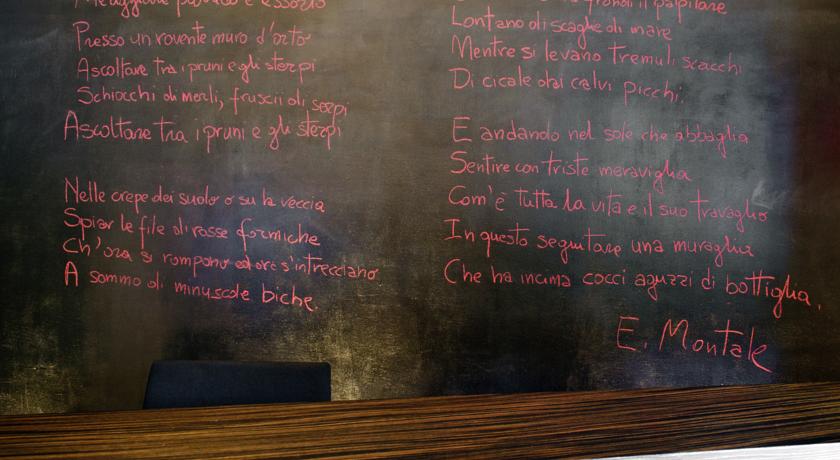 Meriggiare pallido e assorto
Presso un rovente muro d'orto
Ascoltare tra i pruni e gli sterpi
Schiocchi di merli, fruscii di serpi
Ascoltare tra i pruni e gli sterpi
Nelle crepe dei suolo o su la veccia
Spiar le file di rosse formiche
Ch'ora si rompono ed ore s'intrecciano
A sommo di minuscole biche.
il palpitare
Lontano di scaglie di mare
Mentre si levano tremuli scacchi
Di cicale dai calvi picchi.
E andando nel sole che abbaglia
Sentire con triste meraviglia
Com'è tutta la vita e il suo travaglio
In questo seguitare una muraglia
Che ha in cima cocci aguzzi di bottiglia.
E. Montale